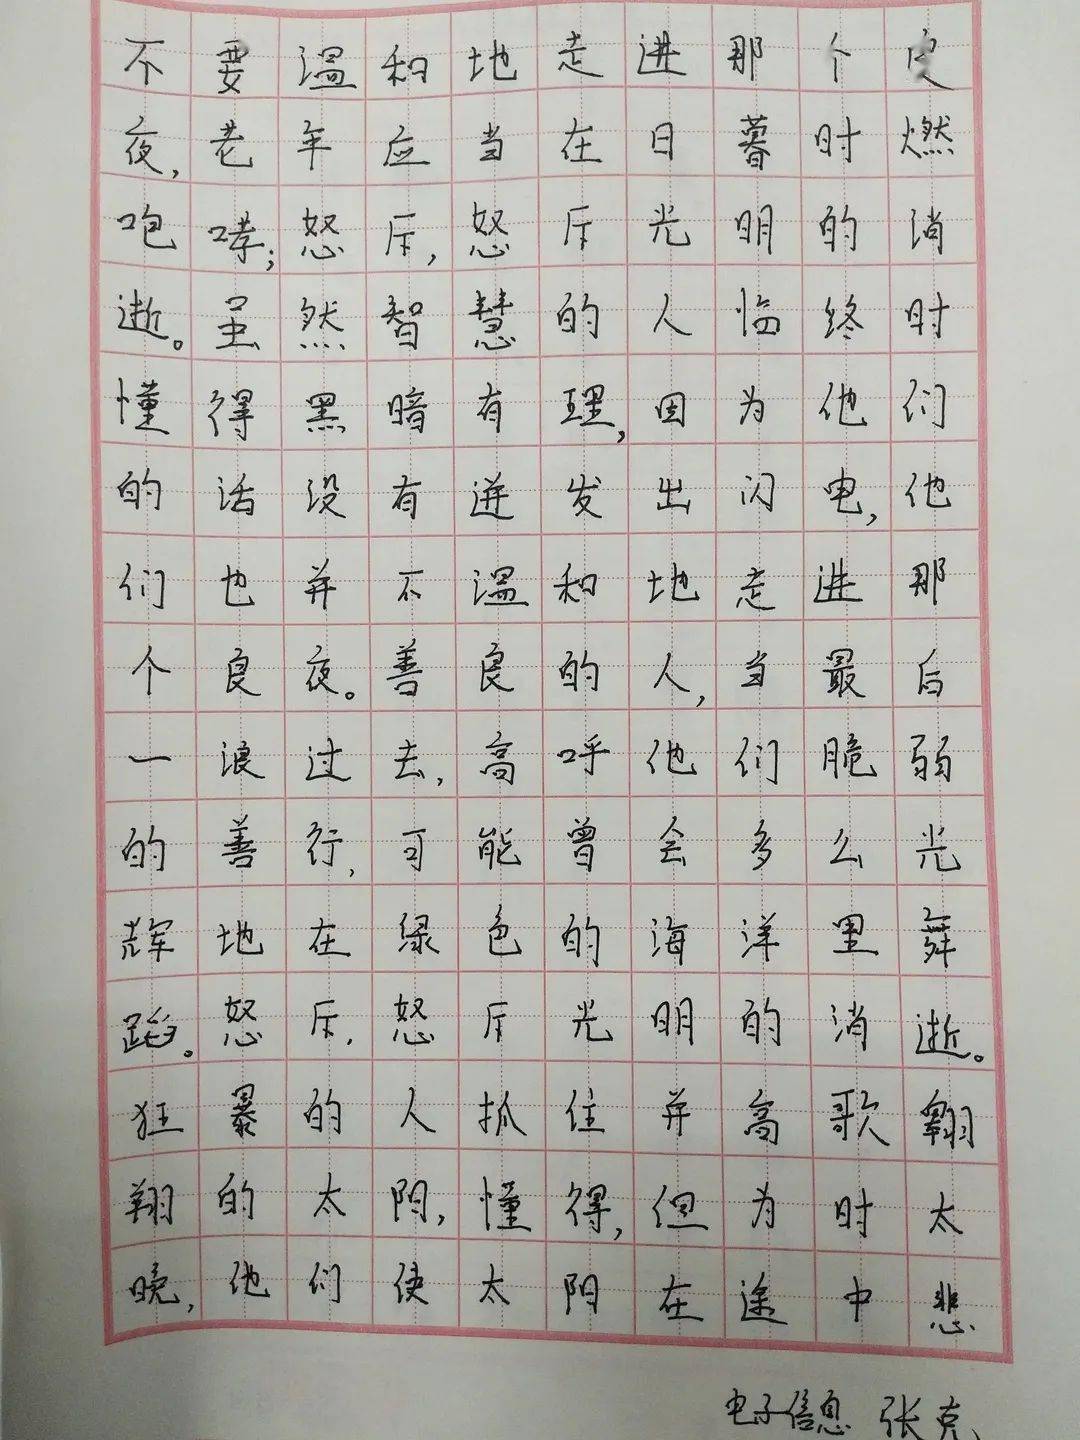 不要温和地走进那个良
夜,老年应当在日暮时燃
咆哮;怒斥,怒斥光明的消
逝。虽然智慧的人临终时
懂得黑暗有理,因为他们
的话没有迸发出闪电,他
们也并不温和地走进那
个良夜。善良的人,当最后
一浪过去,高呼他们脆弱
的善行,可能曾会多么光
辉地在绿色的海洋里舞
蹈。怒斥,怒斥光明的消逝。
狂暴的人抓住并高歌翱
翔的太阳,懂得,但为时太
晚,他们使太阳在途中悲
电子信息 张克